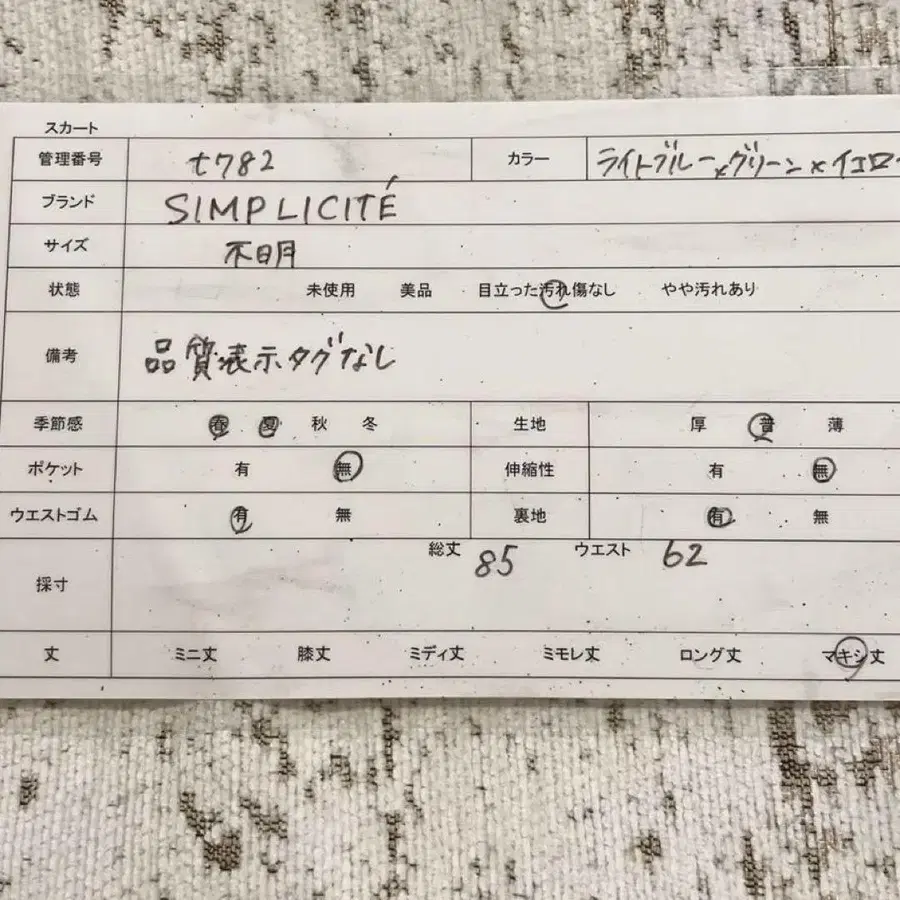 スカート
管理番号 t782 カラー ライトブルー×グリーン×イエロー
ブランド SIMPLICITÉ
サイズ 不明
状態 未使用 美品 目立った汚れ傷なし やや汚れあり
備考 品質表示タグなし
季節感 春 夏 秋 冬 生地 厚 普 薄
ポケット 有 無 伸縮性 有 無
ウエストゴム 有 無 裏地 有 無
採寸 総丈 85 ウエスト 62
丈 ミニ丈 膝丈 ミディ丈 ミモレ丈 ロング丈 マキシ丈